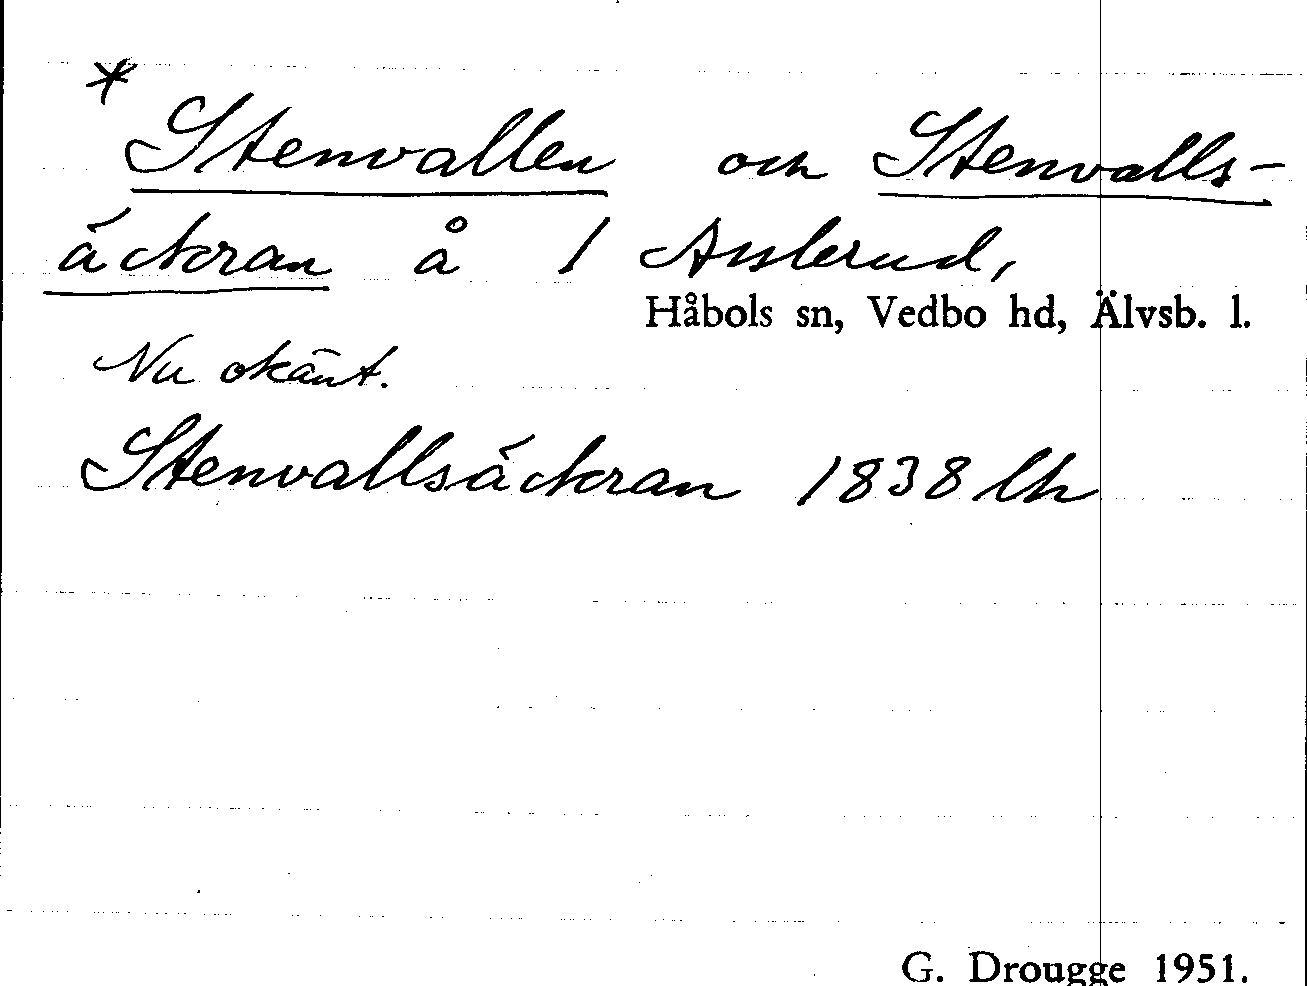 *
Stenvallen och Stenvalls-
äckran å 1 Asslerud,
Håbols sn, Vedbo hd, Älvsb. l.
Nu okänt.
Stenvallsäckran 1838 lh
G. Drougge 1951.